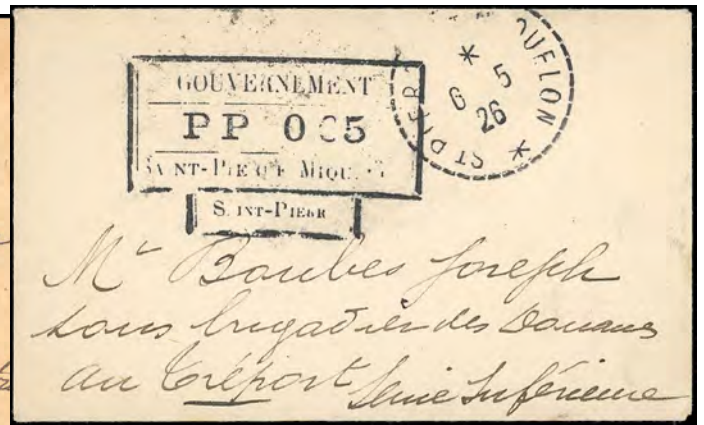 GOUVERNEMENT
PP 0 5
MIQU
SAINT-PIERR
ST PIERR QUELON
6 5
26
Mr Boubes Joseph
sous brigadier des Douanes
au Tréport Seine Inférieure